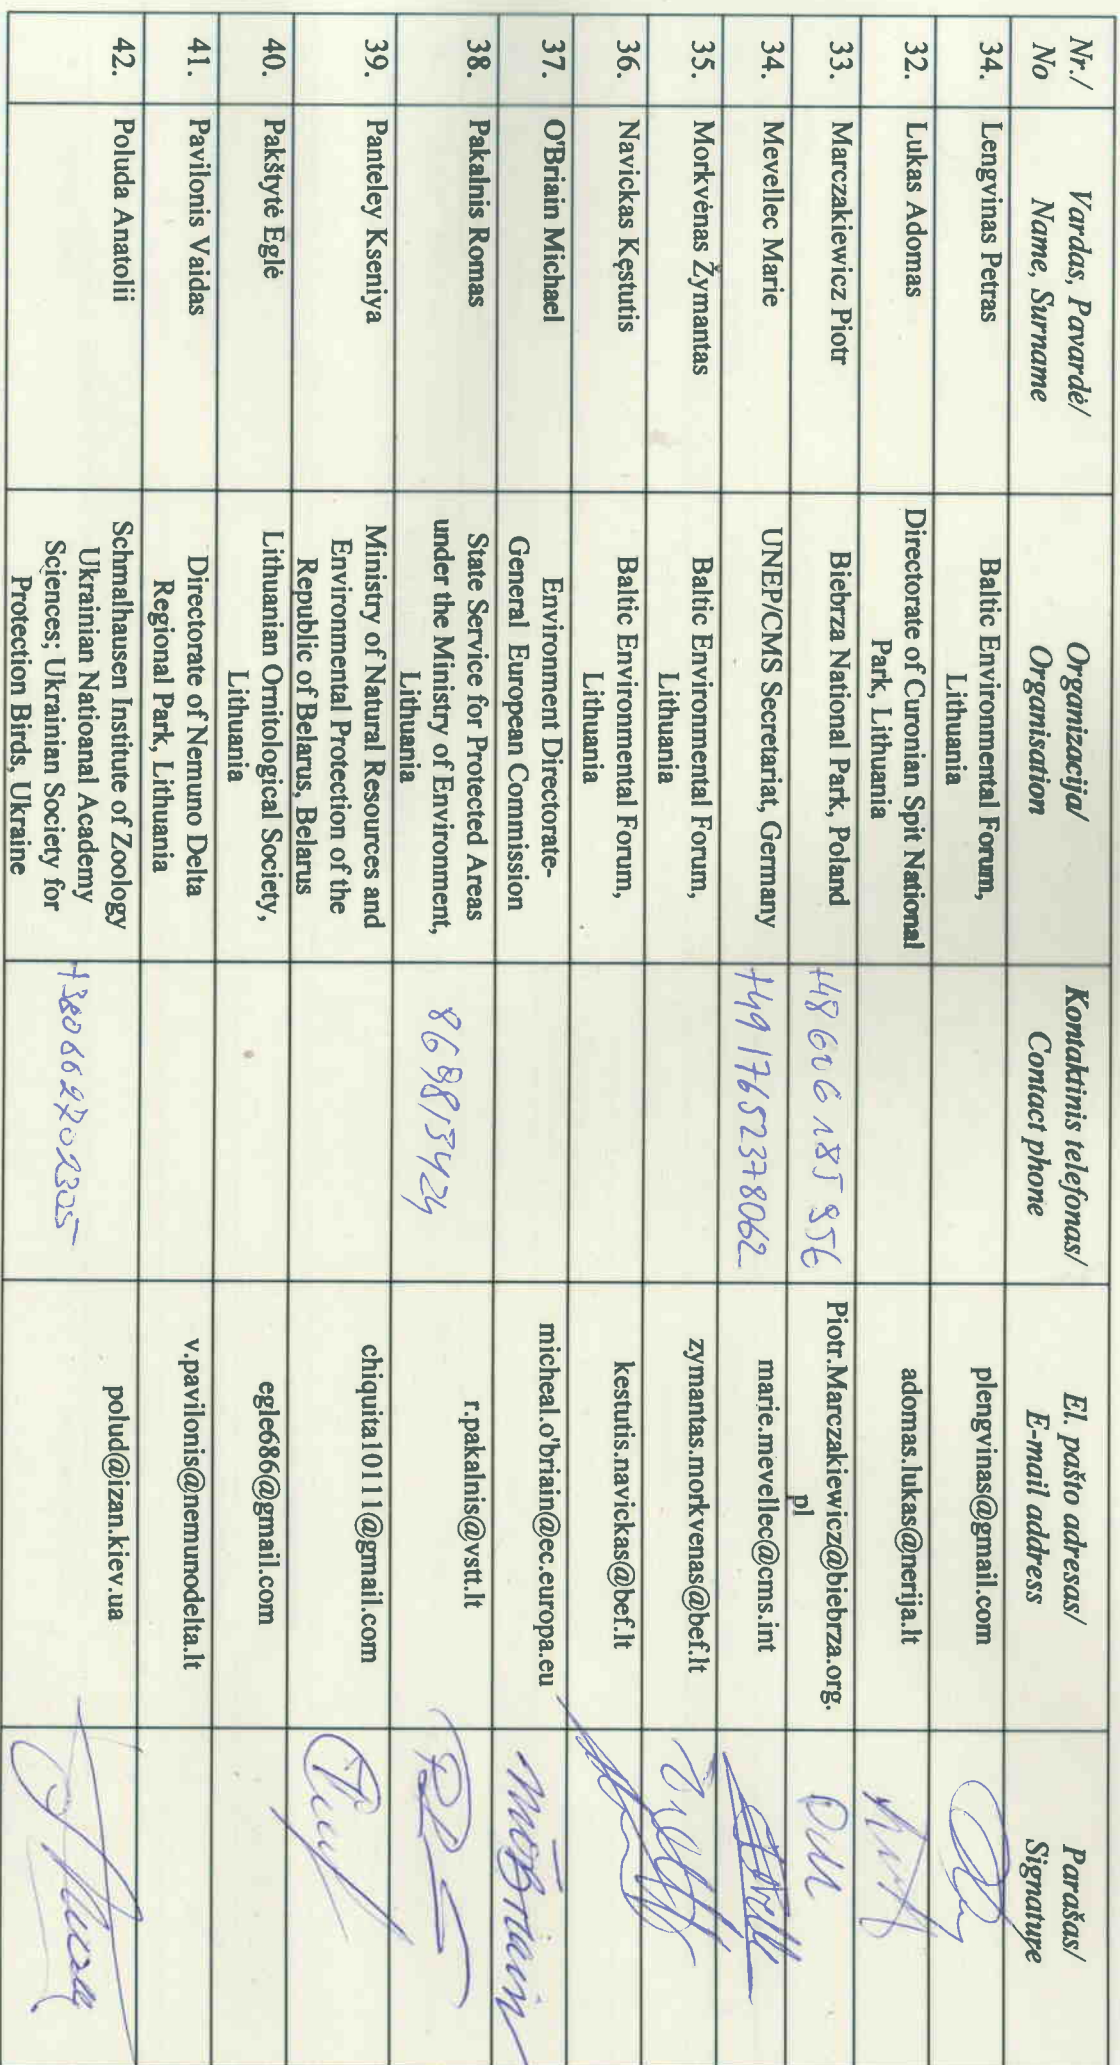 Nr./
No
Vardas, Pavardė/
Name, Surname
Organizacija/
Organisation
Kontaktinis telefonas/
Contact phone
El. pašto adresas/
E-mail address
Parašas/
Signature
34.
Lengvinas Petras
Baltic Environmental Forum,
Lithuania
plengvinas@gmail.com
32.
Lukas Adomas
Directorate of Curonian Spit National
Park, Lithuania
adomas.lukas@nerija.lt
33.
Marczakiewicz Piotr
Biebrza National Park, Poland
+48 606 185 956
Piotr.Marczakiewicz@biebrza.org.
pl
34.
Mevellec Marie
UNEP/CMS Secretariat, Germany
+49 17652378062
marie.mevellec@cms.int
35.
Morkvėnas Žymantas
Baltic Environmental Forum,
Lithuania
zymantas.morkvenas@bef.lt
36.
Navickas Kęstutis
Baltic Environmental Forum,
Lithuania
kestutis.navickas@bef.lt
37.
O'Briain Michael
Environment Directorate-
General European Commission
micheal.o'briain@ec.europa.eu
MOBriain
38.
Pakalnis Romas
State Service for Protected Areas
under the Ministry of Environment,
Lithuania
869815424
r.pakalnis@vstt.lt
39.
Panteley Kseniya
Ministry of Natural Resources and
Environmental Protection of the
Republic of Belarus, Belarus
chiquita10111@gmail.com
40.
Pakštytė Eglė
Lithuanian Ornitological Society,
Lithuania
egle686@gmail.com
41.
Pavilonis Vaidas
Directorate of Nemuno Delta
Regional Park, Lithuania
v.pavilonis@nemunodelta.lt
42.
Poluda Anatolii
Schmalhausen Institute of Zoology
Ukrainian Natioanal Academy
Sciences; Ukrainian Society for
Protection Birds, Ukraine
+380662702305
polud@izan.kiev.ua